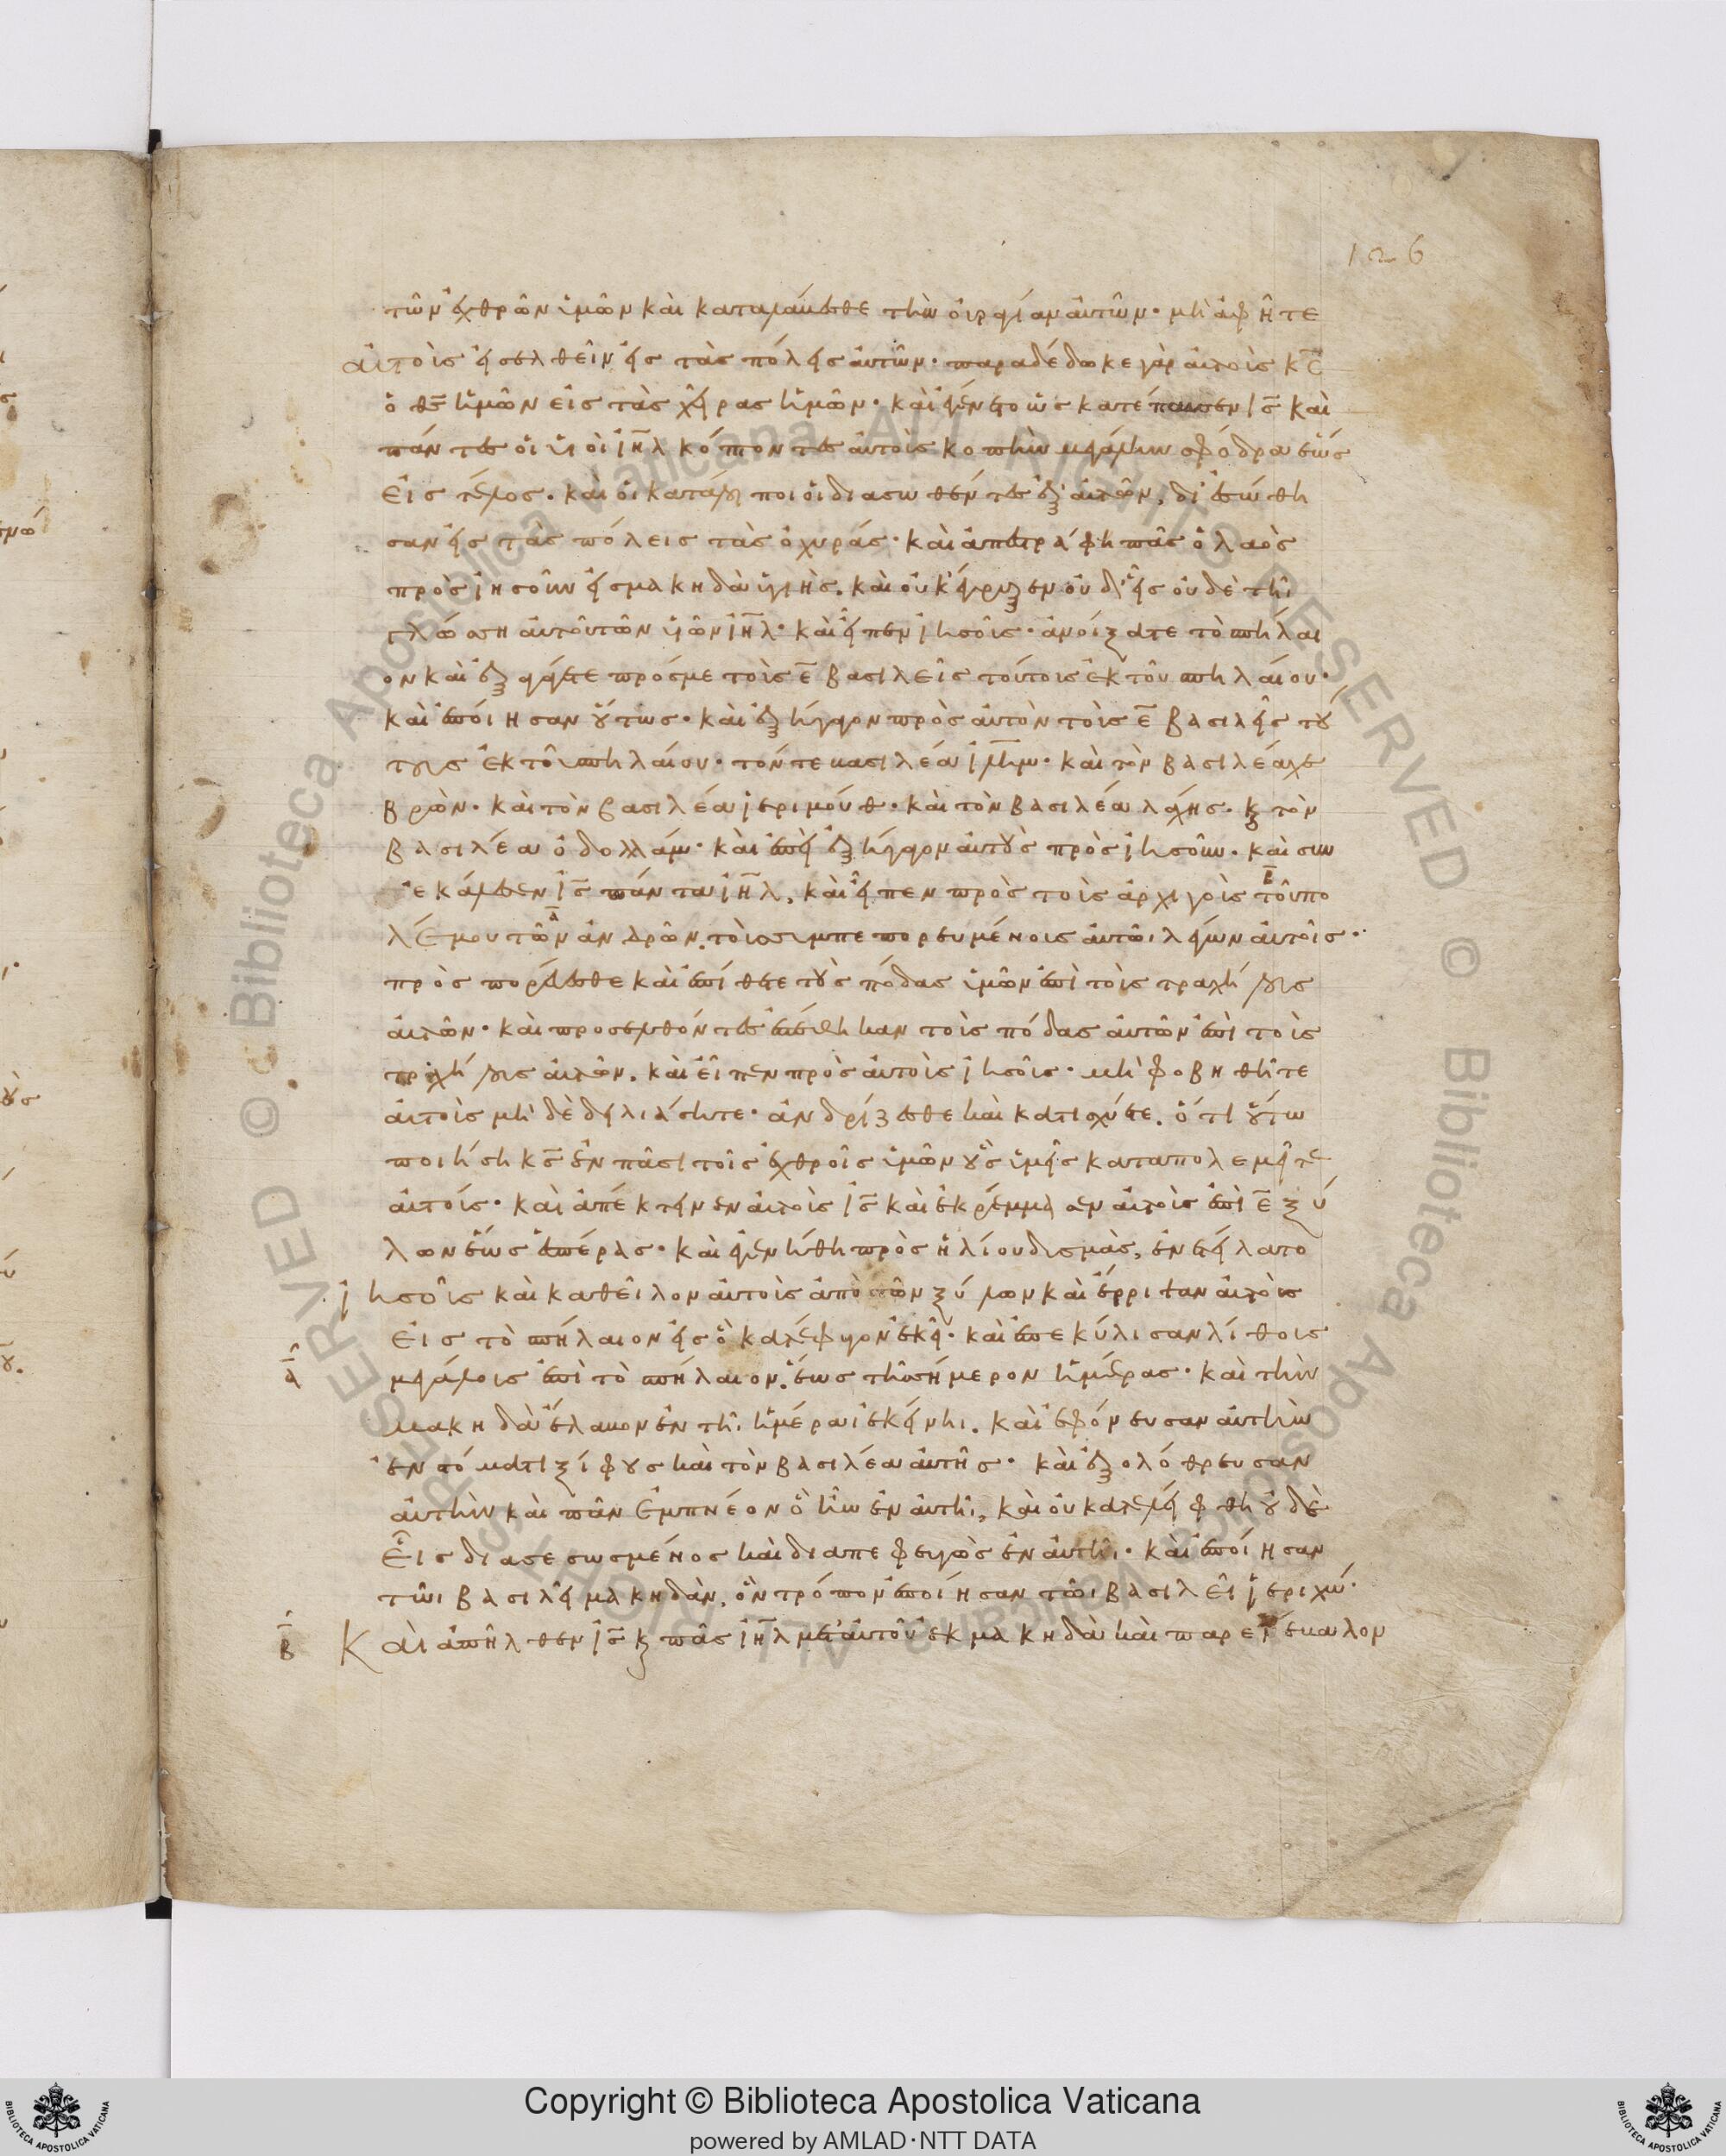 126
τῶν ἐχθρῶν ὑμῶν καὶ καταλάβεσθε τὴν οὐραγίαν αὐτῶν· μὴ ἀφῆτε
αὐτοὺς εἰσελθεῖν εἰς τὰς πόλεις αὐτῶν· παραδέδωκε γὰρ αὐτοὺς κ̅ς̅
ὁ θ̅ς̅ ἡμῶν εἰς τὰς χεῖρας ἡμῶν· καὶ ἐγένετο ὡς κατέπαυσεν ι̅ς̅ καὶ
πάντες οἱ υἱοὶ ι̅η̅λ̅ κόπτοντες αὐτοὺς κοπὴν μεγάλην σφόδρα ἕως
εἰς τέλος. καὶ οἱ κατάλοιποι οἱ διασωθέντες ἐξ αὐτῶν, διεσώθη
σαν εἰς τὰς πόλεις τὰς ὀχυράς· καὶ ἀπεστράφη πᾶς ὁ λαὸς
πρὸς ἰησοῦν εἰς μακηδὰ ὑγιὴς. καὶ οὐκ ἔγρυξεν οὐδεὶς οὐδὲ τῆι
γλώσση αὐτοῦ τῶν υἱῶν ι̅η̅λ̅· καὶ εἶπεν ἰησοῦς· ἀνοίξατε τὸ σπήλαι
ον καὶ ἐξαγάγετε πρός με τοὺς ε̅ βασιλεῖς τούτους ἐκ τοῦ σπηλαίου·
καὶ ἐποίησαν οὕτως· καὶ ἐξήγαγον πρὸς αὐτὸν τοὺς ε̅ βασιλεῖς τού
τους ἐκ τοῦ σπηλαίου· τόν τε βασιλέα ι̅λ̅η̅μ̅· καὶ τὸν βασιλέα χε
βρὼν· καὶ τὸν βασιλέα ἱεριμούθ· καὶ τὸν βασιλέα λαχείς· κ̀ τὸν
βασιλέα ὀδολλάμ· καὶ ἐπεὶ ἐξήγαγον αὐτοὺς πρὸς ἰησοῦν· καὶ συν
εκάλεσεν ι̅ς̅ πάντα ι̅η̅λ̅, καὶ εἶπεν πρὸς τοὺς ἀρχηγοὺς τοῦ πο
λέμου τῶν ἀνδρῶν τοὺς συμπεπορευμένους αὐτῶι λέγων αὐτοῖς·
προσπορεύεσθε καὶ ἐπίθετε τοὺς πόδας ὑμῶν ἐπὶ τοὺς τραχήλους
αὐτῶν· καὶ προσελθόντες ἐπέθηκαν τοὺς πόδας αὐτῶν ἐπὶ τοὺς
τραχήλους αὐτῶν. καὶ εἶπεν πρὸς αὐτοὺς ἰησοῦς· μὴ φοβηθῆτε
αὐτοὺς μὴ δὲ δειλιάσητε· ἀνδρίζεσθε καὶ κατισχύετε. ὅτι οὕτω
ποιήση κ̅ς̅ ἐν πᾶσι τοῖς ἐχθροῖς ὑμῶν οὓς ὑμεῖς καταπολεμεῖτε
αὐτούς· καὶ ἀπέκτεινεν αὐτοὺς ι̅ς̅ καὶ ἐκρέμμασεν αὐτοὺς ἐπὶ ε̅ ξύ
λων ἕως ἑσπέρας· καὶ ἐγενήθη πρὸς ἡλίου δυσμὰς, ἐνετείλατο
ἰησοῦς καὶ καθεῖλον αὐτοὺς ἀπὸ τῶν ξύλων καὶ ἔρριψαν αὐτοὺς
εἰς τὸ σπήλαιον εἰς ὃ κατέφυγον ἐκεῖ· καὶ ἐπεκύλισαν λίθους
μεγάλους ἐπὶ τὸ σπήλαιον. ἕως τῆς σήμερον ἡμέρας· καὶ τὴν
μακηδὰ ἔλαβον ἐν τῆι ἡμέραι ἐκείνηι. καὶ ἐφόνευσαν αὐτὴν
ἐν στόματι ξίφους καὶ τὸν βασιλέα αὐτῆς· καὶ ἐξολόθρευσαν
αὐτὴν καὶ πᾶν ἐμπνέον ὃ ἦν ἐν αὐτῆι, καὶ οὐ κατελείφθη οὐδὲ
εἷς διασεσωσμένος καὶ διαπεφευγὼς ἐν αὐτῆι· καὶ ἐποίησαν
τῶι βασιλεῖ μακηδὰν, ὃν τρόπον ἐποίησαν τῶι βασιλεῖ ἱεριχώ·
Καὶ ἀπῆλθεν ι̅ς̅ κ̀ πᾶς ι̅η̅λ̅ μετ' αὐτοῦ ἐκ μακηδὰ καὶ παρενέβαλον
Copyright © Biblioteca Apostolica Vaticana
powered by AMLAD·NTT DATA